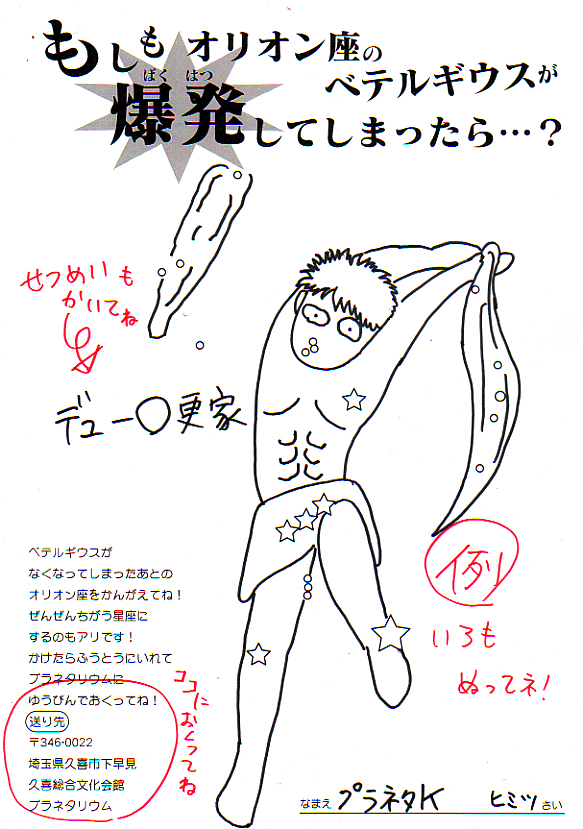 もしも オリオン座の
ベテルギウスが
ばく はつ
爆発してしまったら…?
せつめいも
かいてね
デュー〇更家
ベテルギウスが
なくなってしまったあとの
オリオン座をかんがえてね!
ぜんぜんちがう星座に
するのもアリです!
かけたらふうとうにいれて
プラネタリウムに
ゆうびんでおくってね!
送り先
〒346-0022
埼玉県久喜市下早見
久喜総合文化会館
プラネタリウム
ココにおくってね
例
いろも
ぬってネ!
なまえ プラネタK ヒミツ さい